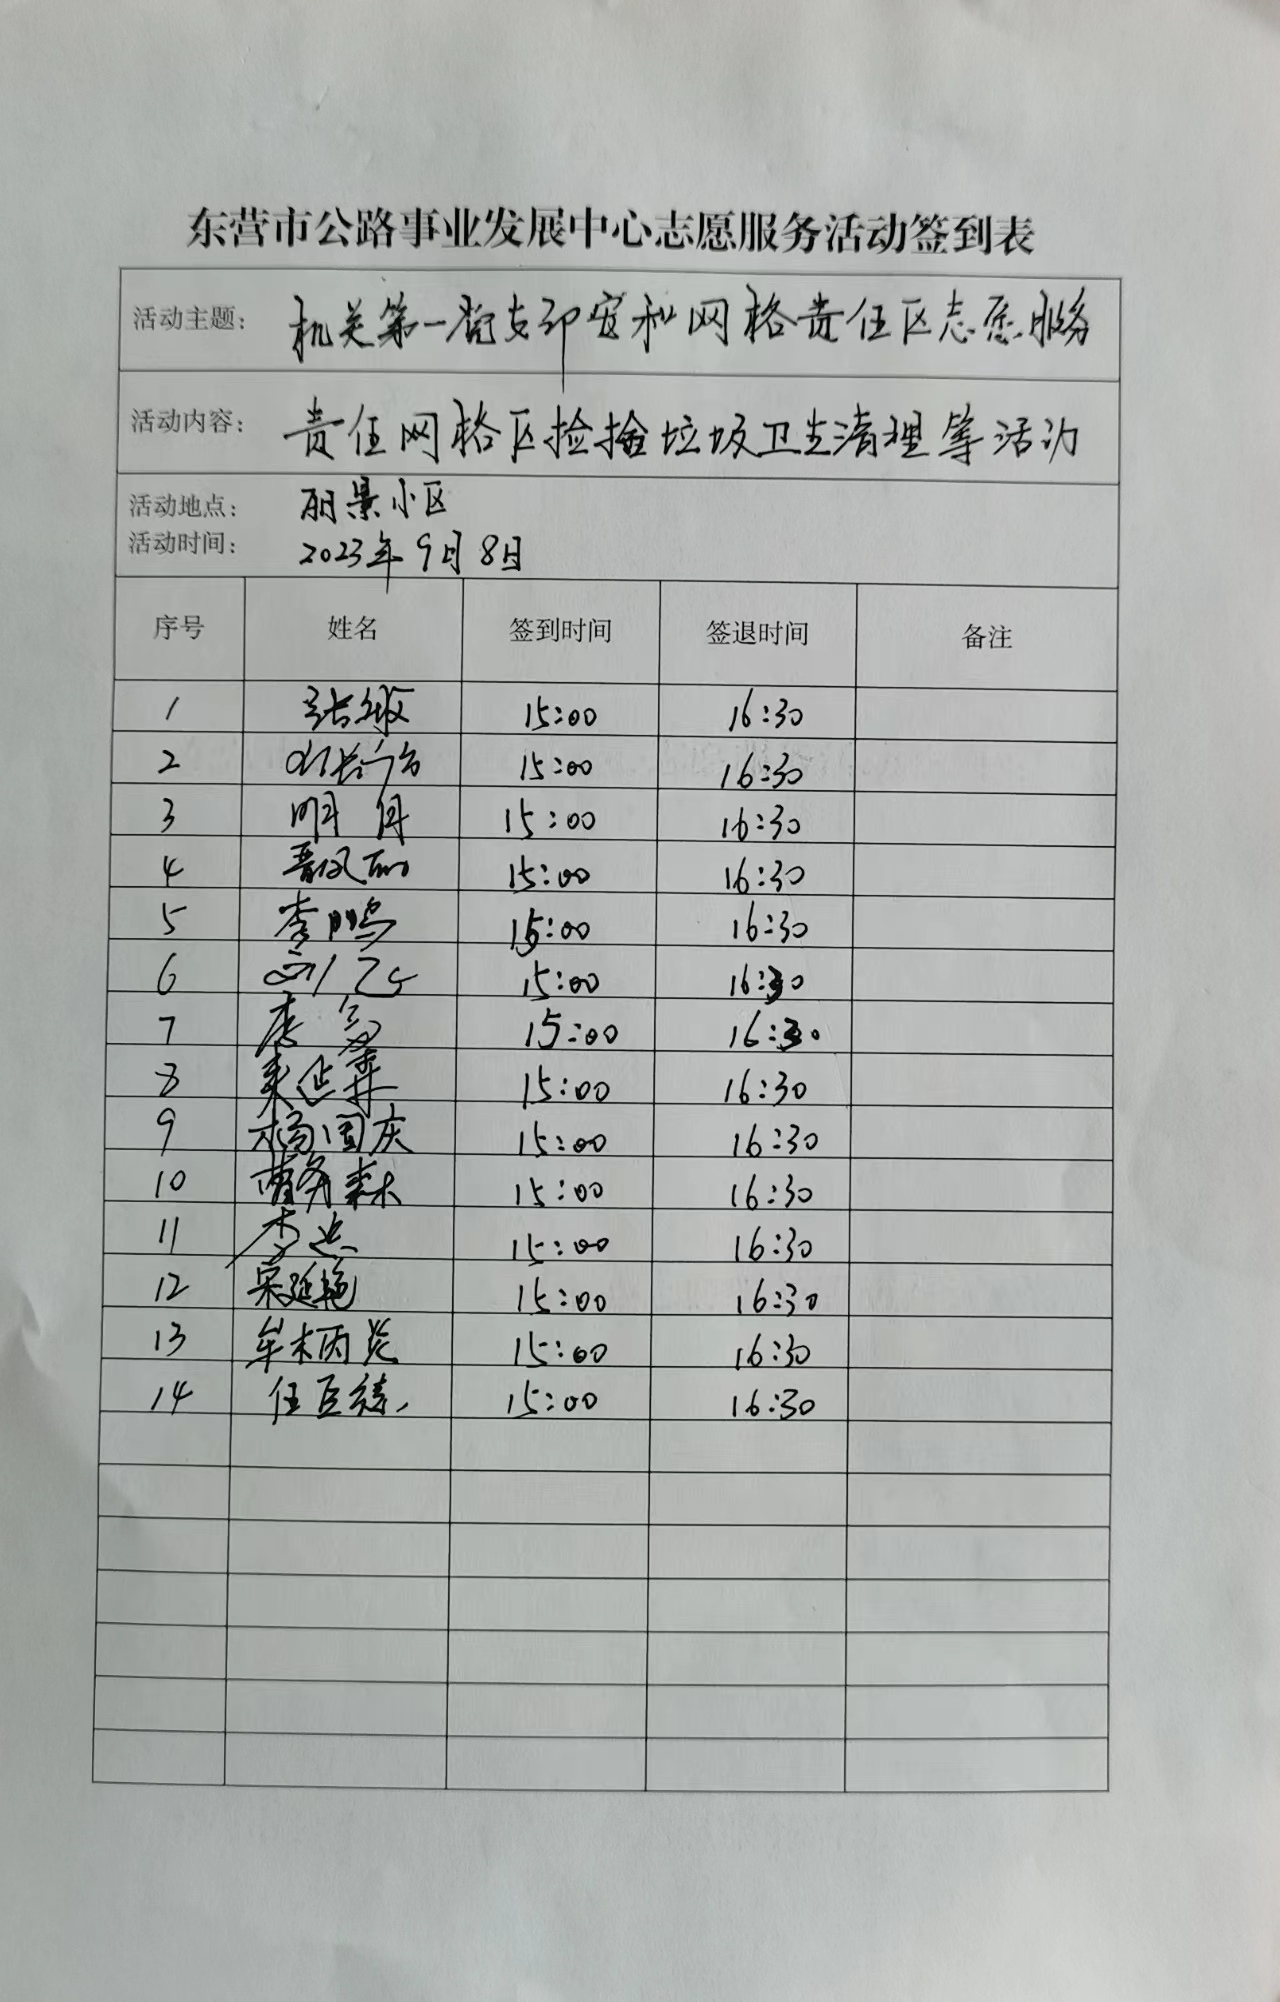 东营市公路事业发展中心志愿服务活动签到表
活动主题: 机关第一党支部安和网格责任区志愿服务
活动内容: 责任网格区捡捡垃圾卫生清理等活动
活动地点: 丽景小区
活动时间: 2023年9月8日
序号 姓名 签到时间 签退时间 备注
1 15:00 16:30
2 15:00 16:30
3 明月 15:00 16:30
4 15:00 16:30
5 李鹏 15:00 16:30
6 15:00 16:30
7 15:00 16:30
8 15:00 16:30
9 杨国庆 15:00 16:30
10 曹务森 15:00 16:30
11 15:00 16:30
12 宋延艳 15:00 16:30
13 15:00 16:30
14 15:00 16:30